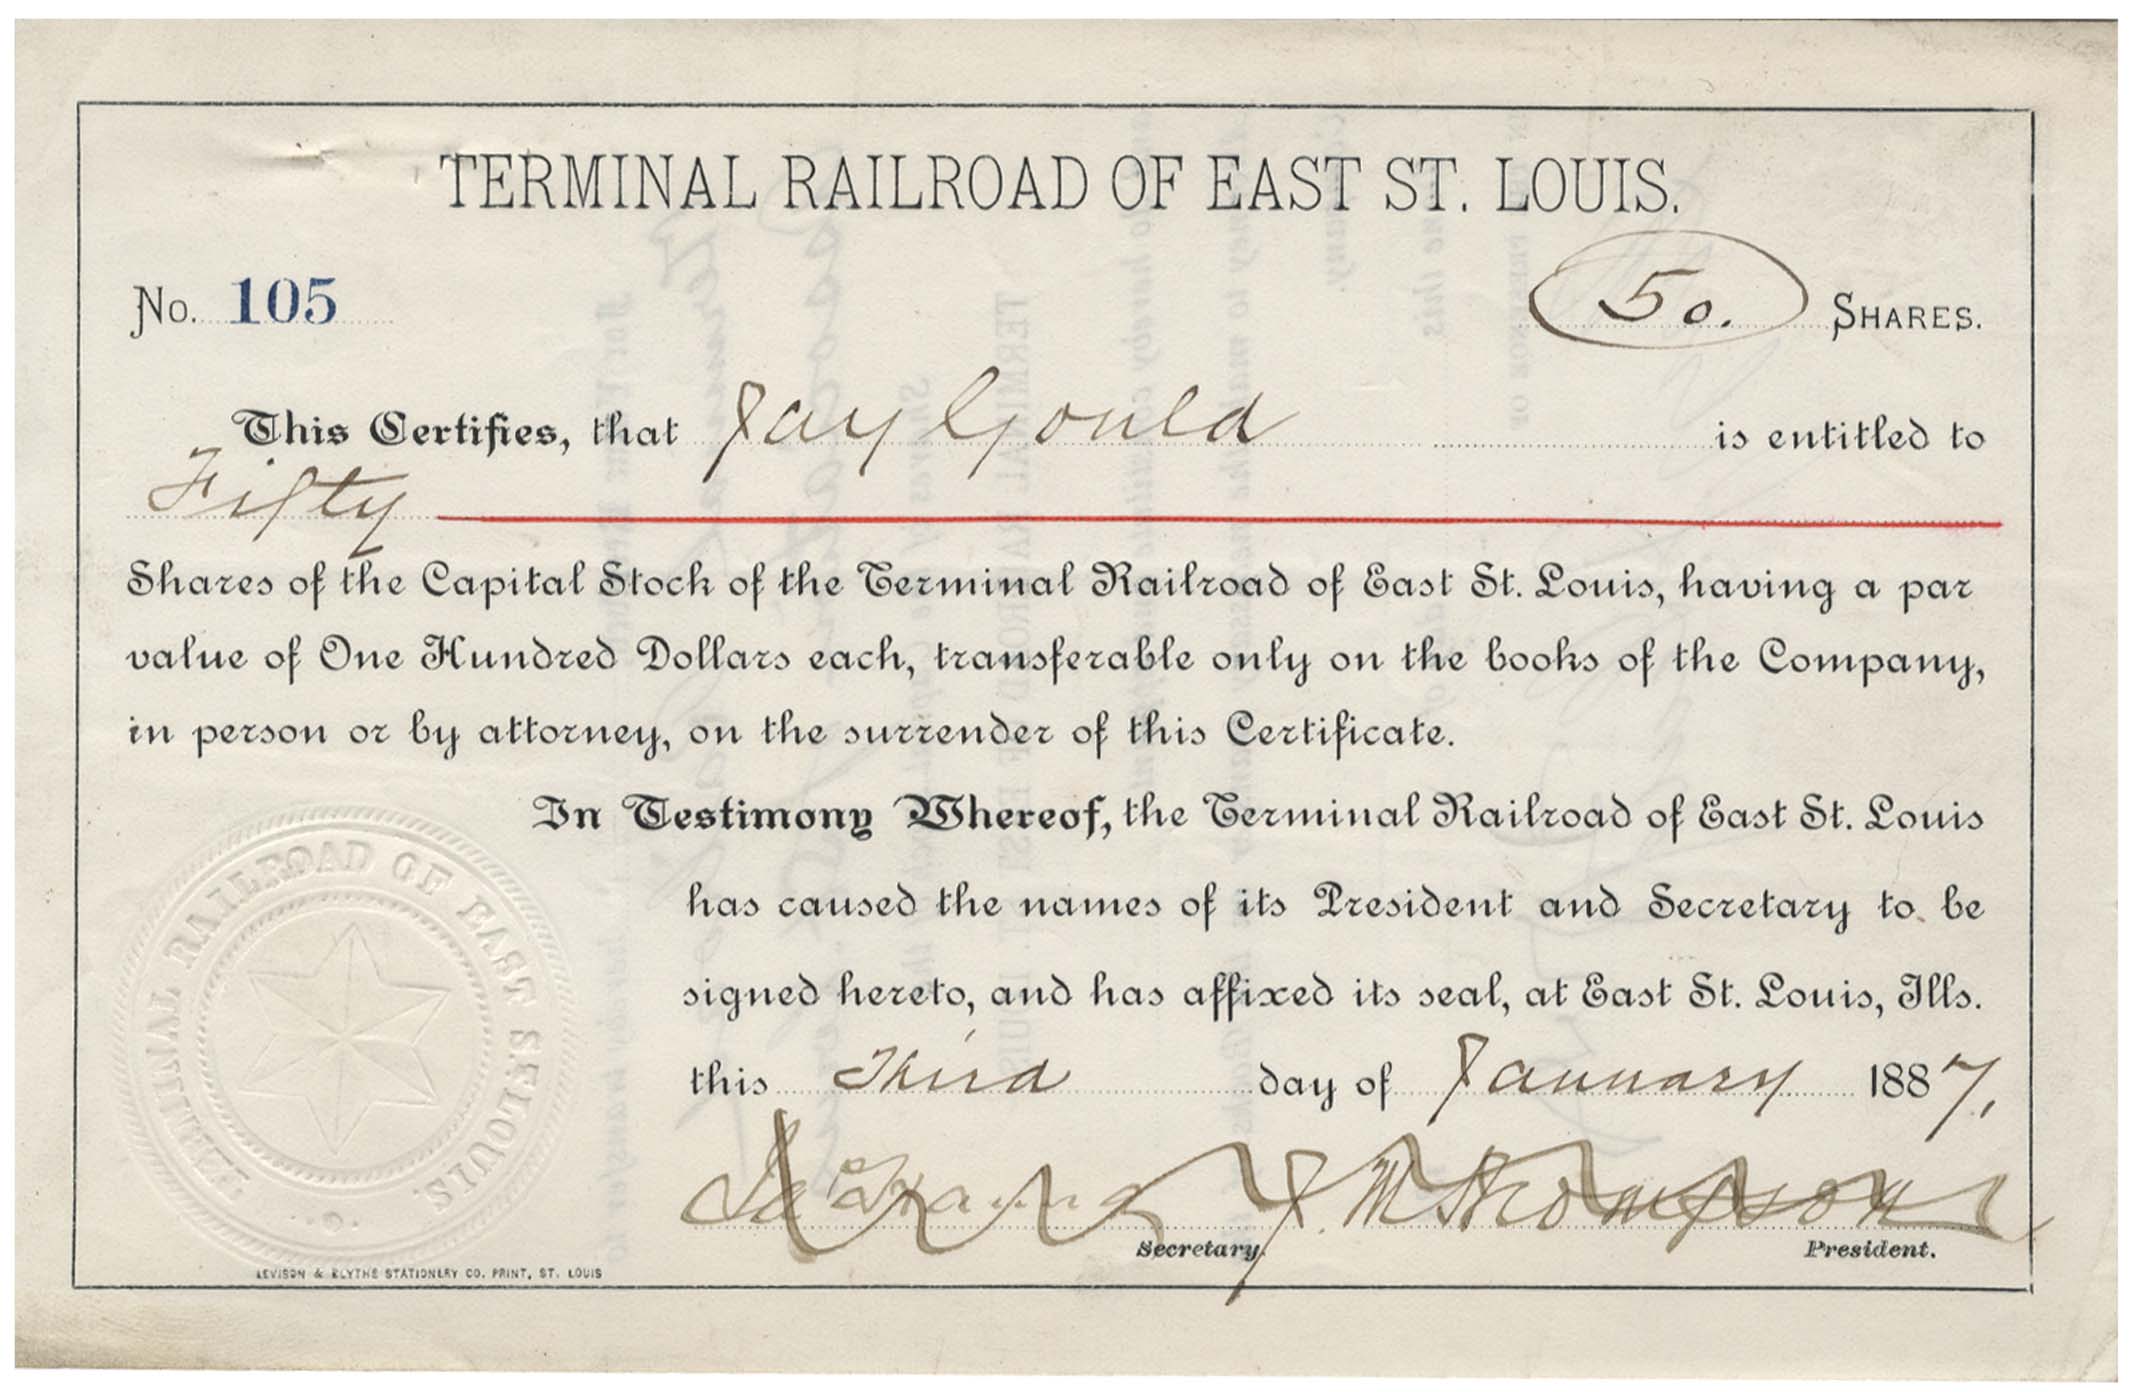 TERMINAL RAILROAD OF EAST ST. LOUIS.
No. 105
50. SHARES.
This Certifies, that Jay Gould is entitled to
Fifty
Shares of the Capital Stock of the Terminal Railroad of East St. Louis, having a par
value of One Hundred Dollars each, transferable only on the books of the Company,
in person or by attorney, on the surrender of this Certificate.
In Testimony Whereof, the Terminal Railroad of East St. Louis
has caused the names of its President and Secretary to be
signed hereto, and has affixed its seal, at East St. Louis, Ills.
this Third day of January 1887,
J. M Thompson
Secretary. President.
TERMINAL RAILROAD OF EAST ST. LOUIS.
LEVISON & BLYTHE STATIONERY CO. PRINT, ST. LOUIS